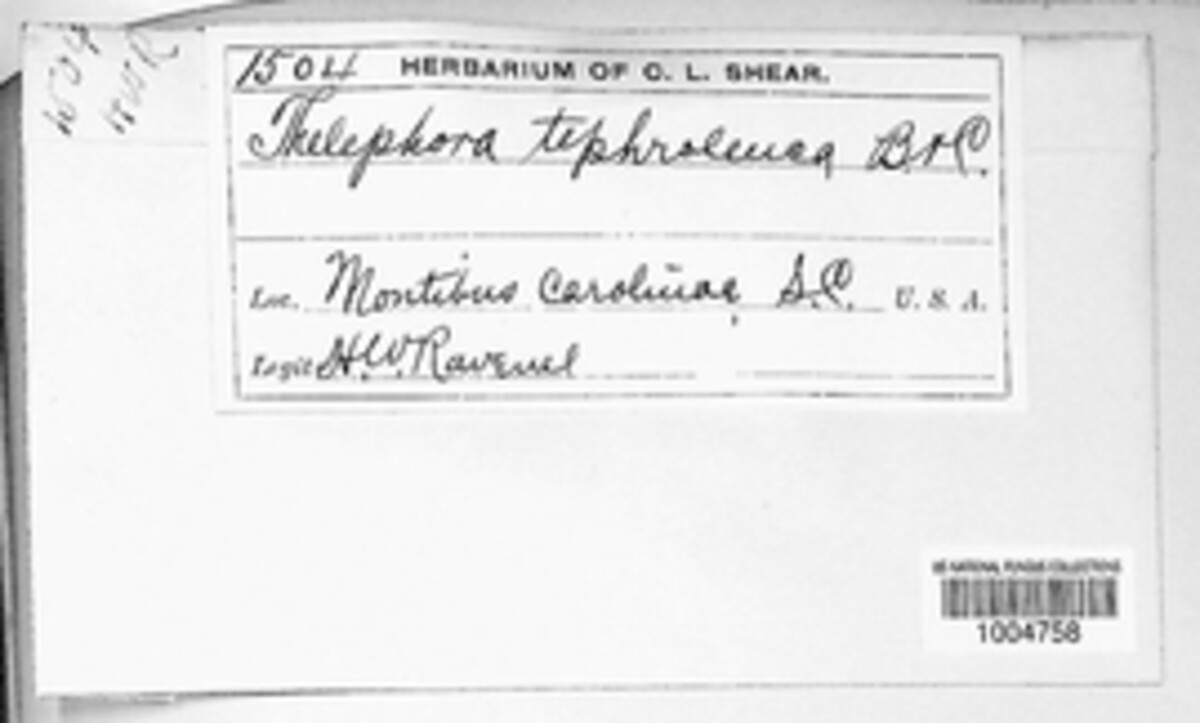 1504
HWR
1504 HERBARIUM OF C. L. SHEAR.
Thelephora tephroleuca B. & C.
Loc. Montibus Carolinae, S.C. U. S. A.
Legit H.W. Ravenel
US NATIONAL FUNGUS COLLECTIONS
1004758